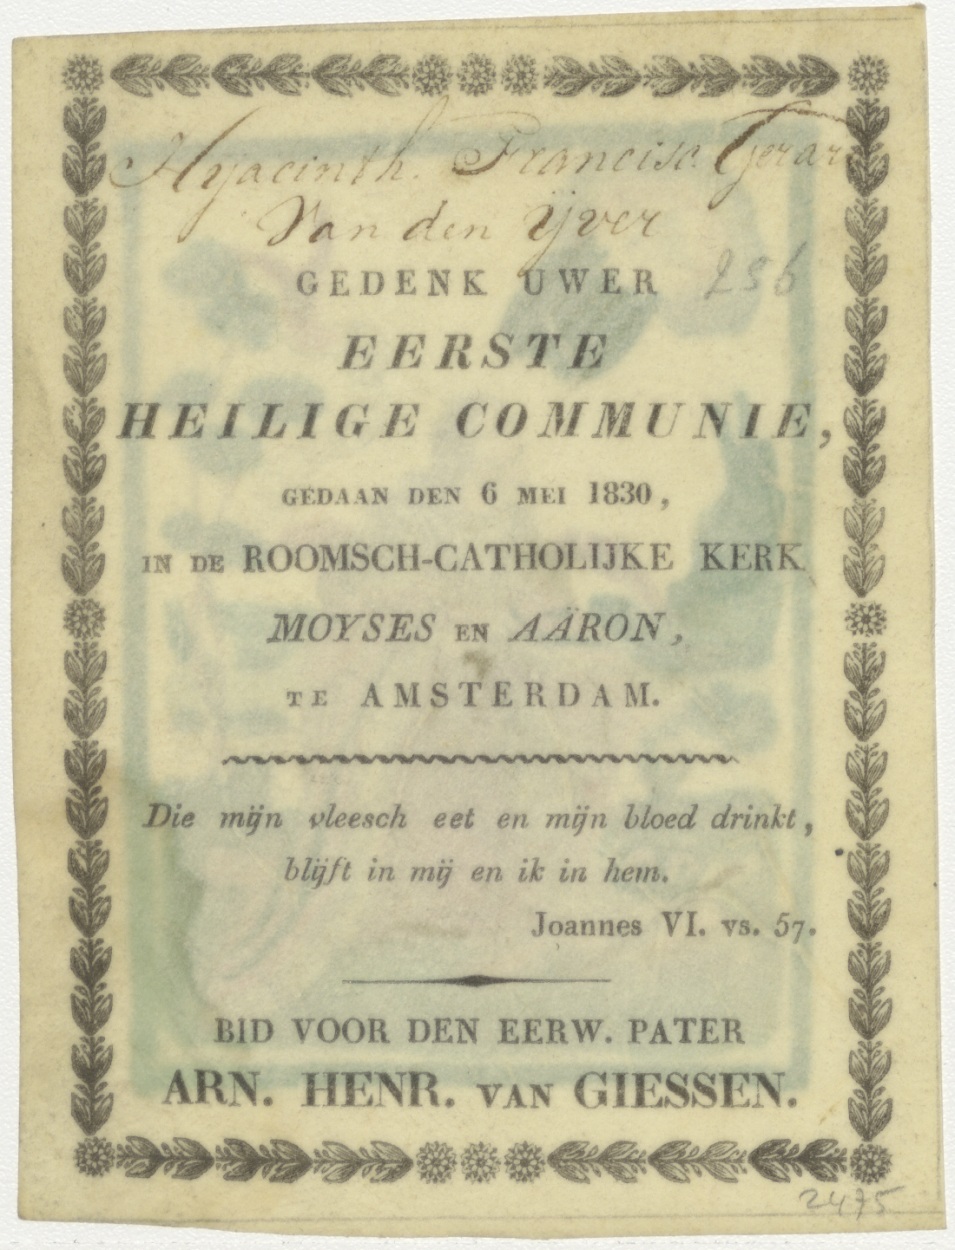 Hyacinth. Francisc. Gerar
Van den Yver
GEDENK UWER 256
EERSTE
HEILIGE COMMUNIE,
GEDAAN DEN 6 MEI 1830,
IN DE ROOMSCH-CATHOLIJKE KERK
MOYSES EN AÄRON,
TE AMSTERDAM.
Die mijn vleesch eet en mijn bloed drinkt,
blijft in mij en ik in hem.
Joannes VI. vs. 57.
BID VOOR DEN EERW. PATER
ARN. HENR. VAN GIESSEN.
2475